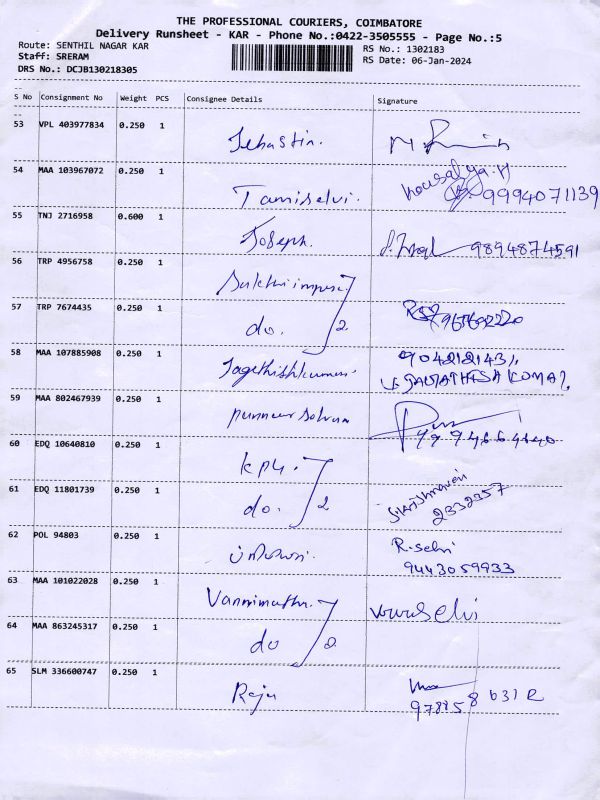 THE PROFESSIONAL COURIERS, COIMBATORE
Delivery Runsheet - KAR - Phone No.:0422-3505555 - Page No.:5
Route: SENTHIL NAGAR KAR
RS No.: 1302183
Staff: SRERAM
RS Date: 06-Jan-2024
DRS No.: DCJB130218305
S No Consignment No Weight PCS Consignee Details Signature
53 VPL 403977834 0.250 1 Sebastin.
54 MAA 103967072 0.250 1 Tamilselvi. Kousalya.M 9994071139
55 TNJ 2716958 0.600 1 Joseph. 9894874591
56 TRP 4956758 0.250 1
57 TRP 7674435 0.250 1 do. 2
58 MAA 107885908 0.250 1 Jagathishkumar
59 MAA 802467939 0.250 1
60 EDQ 10640810 0.250 1
61 EDQ 11801739 0.250 1 do. 2 2332357
62 POL 94803 0.250 1 R.selvi
9443059933
63 MAA 101022028 0.250 1 Vannimuthu.
64 MAA 863245317 0.250 1 do 2
65 SLM 336600747 0.250 1 Raju